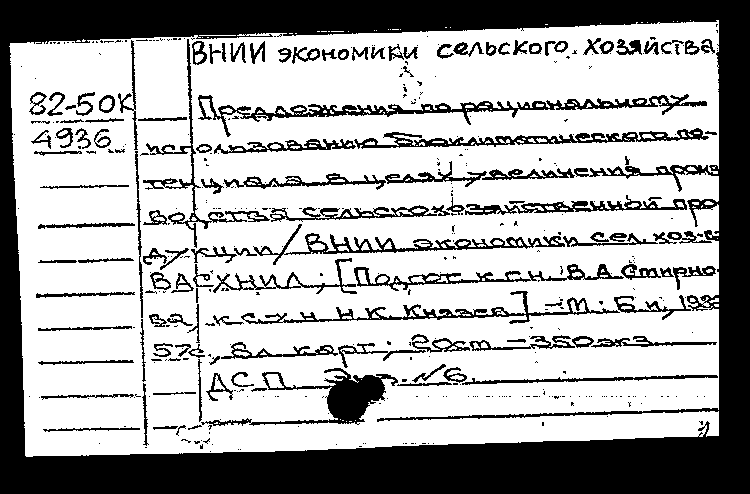 ВНИИ экономики сельского хозяйства
82-50К Предложения по рациональному
4936 использованию биоклиматического по-
тенциала в целях увеличения произ
водства сельскохозяйственной про
дукции / ВНИИ экономики сел. хоз-ва
ВАСХНИЛ; [Подгот. к.г.н. В.А. Смирно
ва, к.с.-х.н. Н.К. Князев] – М.: Б.и., 198
57с., 8л. карт; 20см – 350экз.
ДСП. №6.